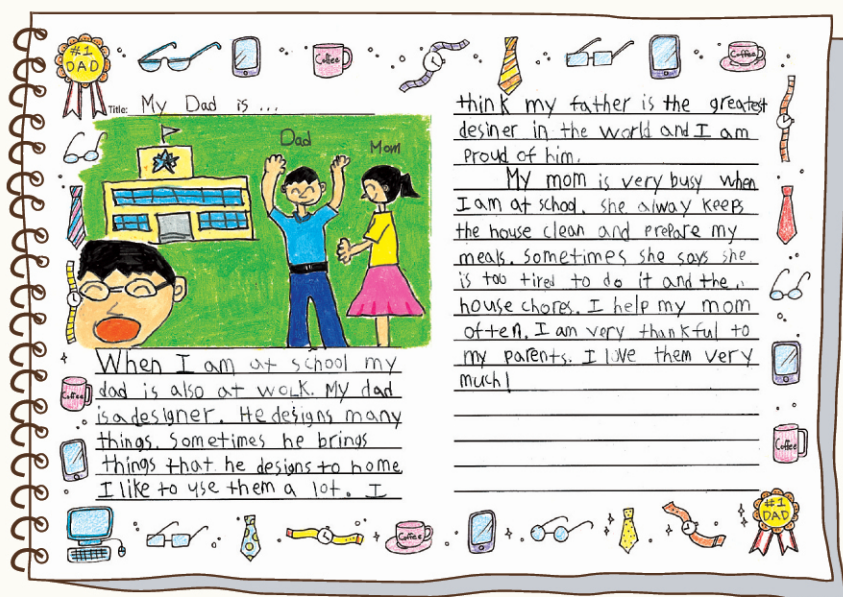 #1
DAD
Coffee
Coffee
Title: My Dad is ...
Dad
Mom
When I am at school my
dad is also at work. My dad
is a designer. He designs many
things. Sometimes he brings
things that he designs to home
I like to use them a lot. I
think my father is the greatest
desiner in the world and I am
Proud of him.
My mom is very busy when
I am at school. she alway keeps
the house clean and prepare my
meals. Sometimes she says she
is too tired to do it and the
house chores. I help my mom
often. I am very thankful to
my parents. I love them very
much!
Coffee
Coffee
Coffee
#1
DAD